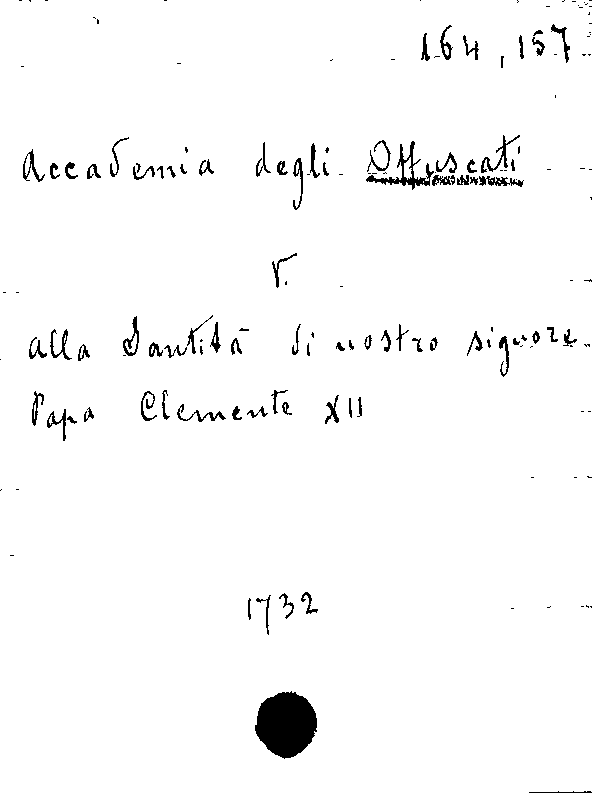 164, 157
Accademia degli Offuscati
V.
alla Santità di nostro signore
Papa Clemente XII
1732